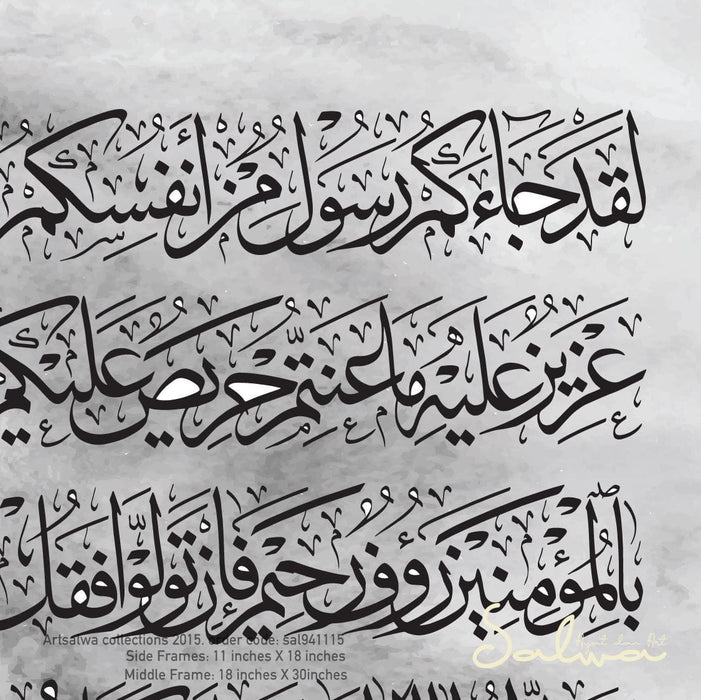 لَقَدْ جَاءَكُمْ رَسُولٌ مِنْ أَنفُسِكُمْ
عَزِيزٌ عَلَيْهِ مَا عَنِتُّمْ حَرِيصٌ عَلَيْكُم
بِالْمُؤْمِنِينَ رَءُوفٌ رَحِيمٌ فَإِن تَوَلَّوْا فَقُلْ
Artsalwa collections 2015. order code: sal941115
Side Frames: 11 inches X 18 inches
Middle Frame: 18 inches X 30inches
Salwa